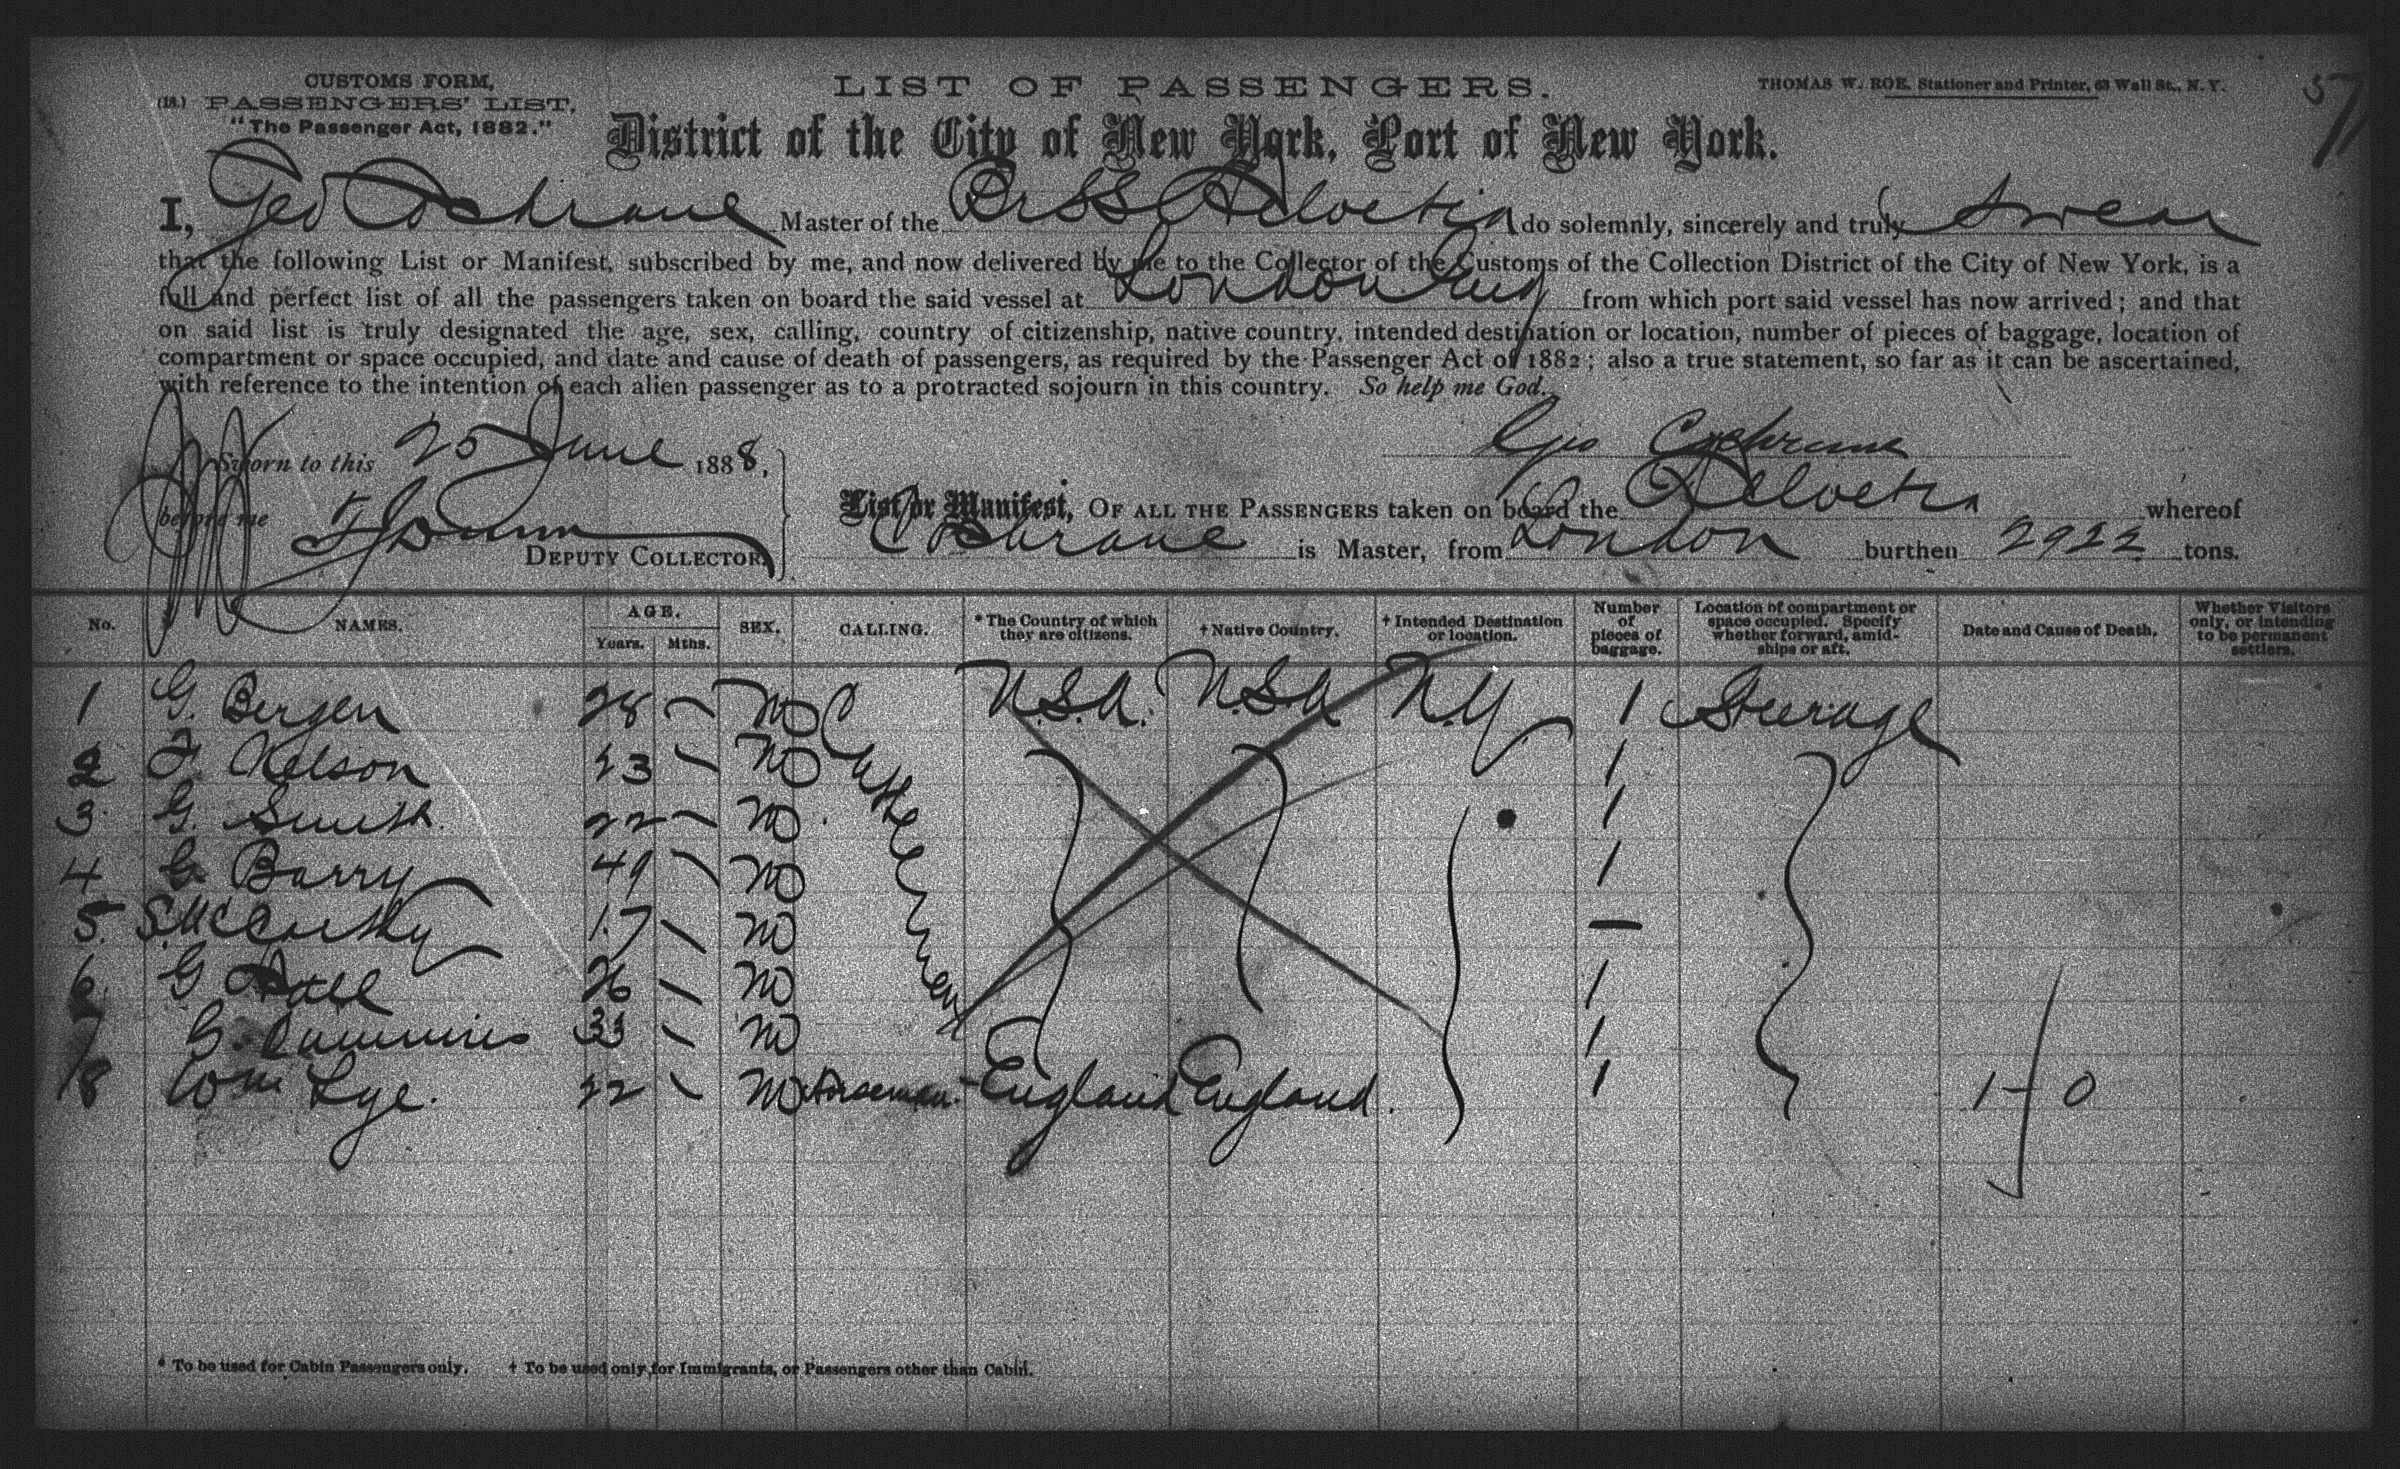 CUSTOMS FORM,
(18.) PASSENGERS' LIST,
"The Passenger Act, 1882."
LIST OF PASSENGERS.
THOMAS W. ROE, Stationer and Printer, 63 Wall St., N. Y.
57
District of the City of New York, Port of New York.
I, Geo Cochrane Master of the Br SS Helvetia do solemnly, sincerely and truly swear
that the following List or Manifest, subscribed by me, and now delivered by me to the Collector of the Customs of the Collection District of the City of New York, is a
full and perfect list of all the passengers taken on board the said vessel at London Eng from which port said vessel has now arrived; and that
on said list is truly designated the age, sex, calling, country of citizenship, native country, intended destination or location, number of pieces of baggage, location of
compartment or space occupied, and date and cause of death of passengers, as required by the Passenger Act of 1882; also a true statement, so far as it can be ascertained,
with reference to the intention of each alien passenger as to a protracted sojourn in this country. So help me God.
Sworn to this 25 June 1888,
Geo Cochrane
before me
DEPUTY COLLECTOR.
List or Manifest, OF ALL THE PASSENGERS taken on board the Helvetia whereof
Cochrane is Master, from London burthen 2922 tons.
No. NAMES. AGE. Years. Mths. SEX. CALLING. * The Country of which they are citizens. † Native Country. † Intended Destination or location. Number of pieces of baggage. Location of compartment or space occupied. Specify whether forward, amidships or aft. Date and Cause of Death. Whether Visitors only, or intending to be permanent settlers.
1 G. Bergen 28 – M Cattlemen U.S.A. U.S.A N.Y 1 Steerage
2 F Nelson 23 – M 1
3 G. Smith 22 – M 1
4 G Barry 49 – M 1
5. S. McCarthy 17 – M –
6 G Hall 26 – M 1
7 G. Cummins 33 – M 1
8 Wm Lye. 22 – M Horseman. England England. 1
1 – 0
* To be used for Cabin Passengers only. † To be used only for Immigrants, or Passengers other than Cabin.